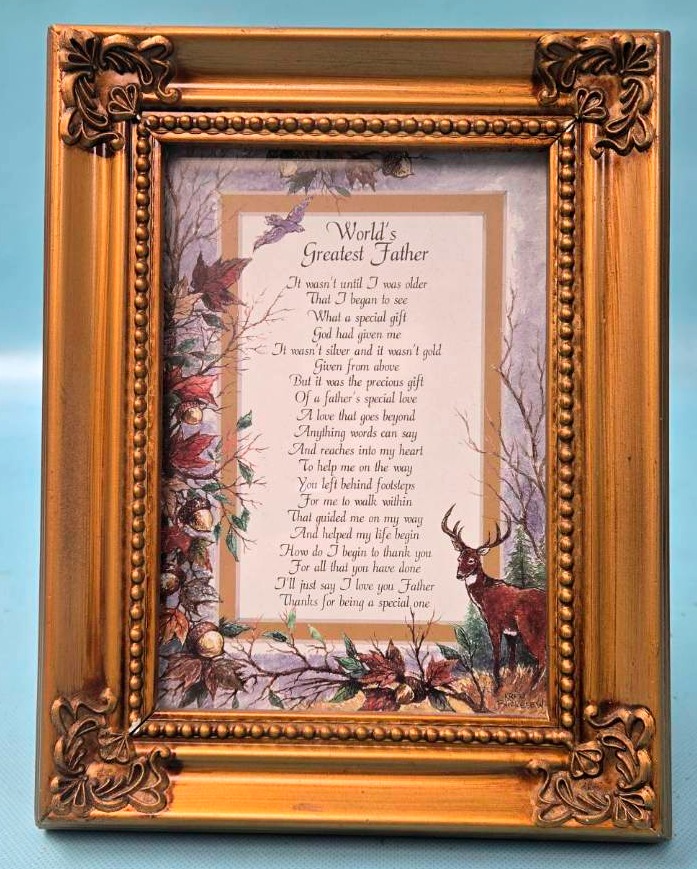 World's
Greatest Father
It wasn't until I was older
That I began to see
What a special gift
God had given me
It wasn't silver and it wasn't gold
Given from above
But it was the precious gift
Of a father's special love
A love that goes beyond
Anything words can say
And reaches into my heart
To help me on the way
You left behind footsteps
For me to walk within
That guided me on my way
And helped my life begin
How do I begin to thank you
For all that you have done
I'll just say I love you Father
Thanks for being a special one